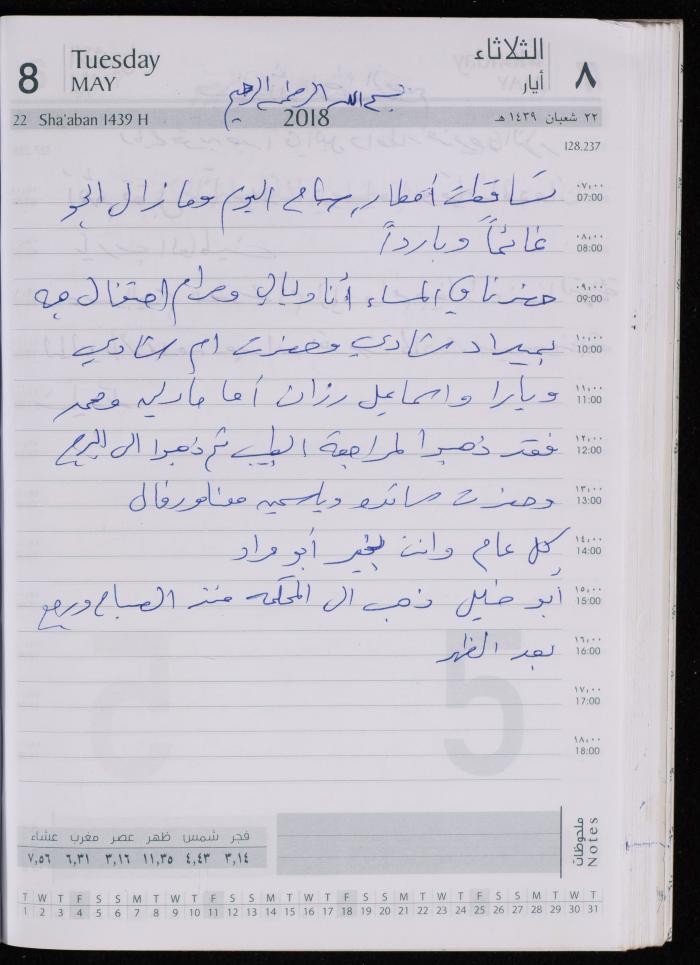 8 Tuesday MAY الثلاثاء أيار ٨
بسم الله الرحمن الرحيم
22 Sha'aban 1439 H 2018 ٢٢ شعبان ١٤٣٩ هـ
128.237
٠٧,٠٠ 07:00 تساقطت أمطار صباح اليوم وما زال الجو
٠٨,٠٠ 08:00 غائماً وبارداً
٠٩,٠٠ 09:00 حضرنا في المساء أنا وليالي ومرام احتفال
١٠,٠٠ 10:00 بميلاد شادي وحضرت ام شادي
١١,٠٠ 11:00 ويارا واسماعيل رزان أما مادلين ومحمد
١٢,٠٠ 12:00 فقد ذهبوا لمراجعة الطبيب ثم ذهبوا الى البرج
١٣,٠٠ 13:00 وحضرت وياسمين
١٤,٠٠ 14:00 كل عام وانت بخير أبو مراد
١٥,٠٠ 15:00 أبو خليل ذهب الى المحكمة منذ الصباح ورجع
١٦,٠٠ 16:00 بعد الظهر
١٧,٠٠ 17:00
١٨,٠٠ 18:00
5
ملحوظات Notes
فجر شمس ظهر عصر مغرب عشاء
٣,١٤ ٤,٤٣ ١١,٣٥ ٣,١٦ ٦,٣١ ٧,٥٦
T W T F S S M T W T F S S M T W T F S S M T W T F S S M T W T
1 2 3 4 5 6 7 8 9 10 11 12 13 14 15 16 17 18 19 20 21 22 23 24 25 26 27 28 29 30 31